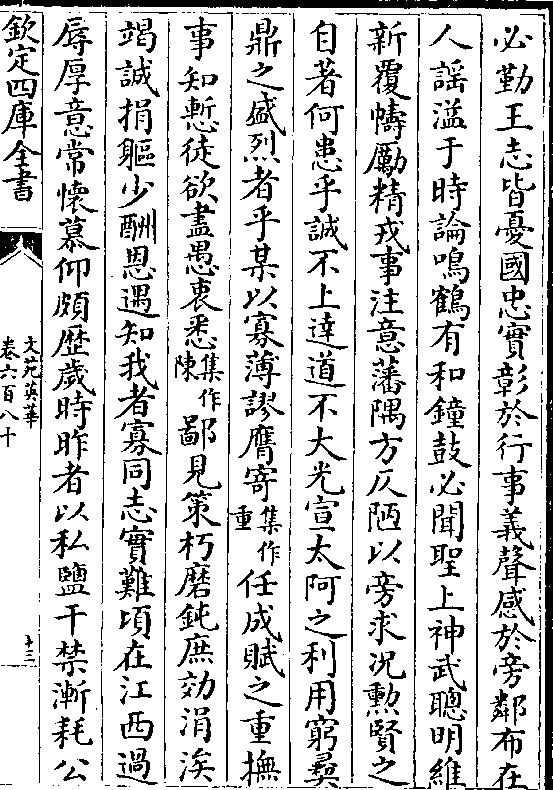 必勤王志皆憂國忠實彰於行事義聲感於旁鄰布在
人謡溢于時論鳴鶴有和鐘鼓必聞聖上神武聰明維
新覆幬勵精戎事注意藩隅方仄陋以旁求况勲賢之
自著何患乎誠不上達道不大光宣太阿之利用窮彛
鼎之盛烈者乎某以寡薄謬膺寄集作重任成賦之重撫
事知慙徒欲盡愚衷悉集作陳鄙見策朽磨鈍庶効涓涘
竭誠捐軀少酬恩遇知我者寡同志實難頃在江西過
辱厚意常懷慕仰頗歴歲時昨者以私鹽干禁漸耗公
欽定四庫全書
文苑英華
卷六百八十
十三